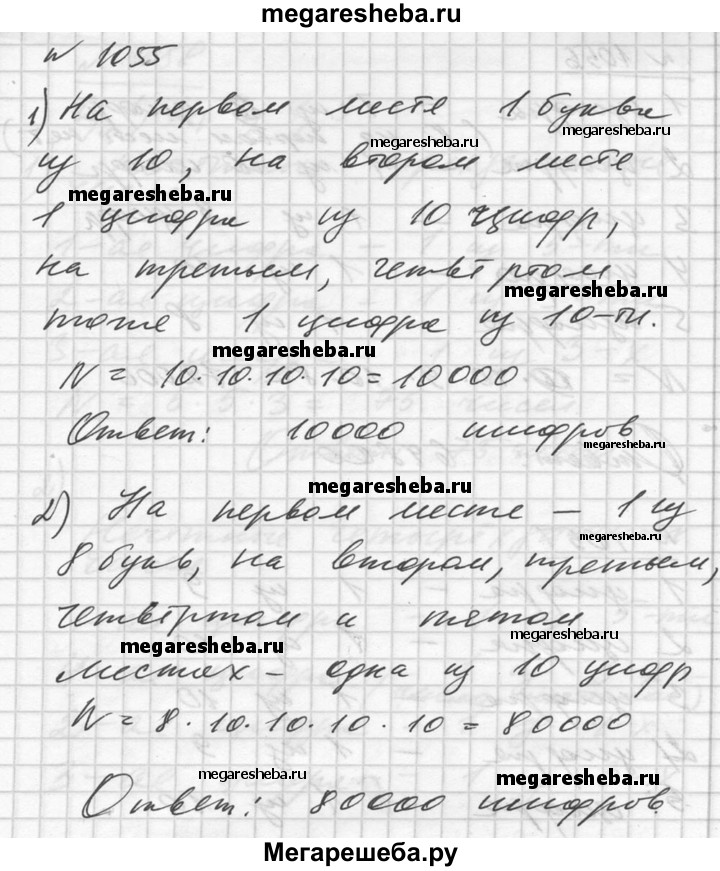 megaresheba.ru
№ 1055
1) На первом месте 1 буква
megaresheba.ru
megaresheba.ru
из 10, на втором месте
megaresheba.ru
1 цифра из 10 цифр,
на третьем, четвёртом
megaresheba.ru
тоже 1 цифра из 10-ти.
megaresheba.ru
N = 10·10·10·10 = 10000
Ответ: 10000 шифров
megaresheba.ru
megaresheba.ru
2) На первом месте – 1 из
megaresheba.ru
8 букв, на втором, третьем,
четвёртом и пятом
megaresheba.ru
megaresheba.ru
местах – одна из 10 цифр
N = 8·10·10·10·10 = 80000
megaresheba.ru
megaresheba.ru
Ответ: 80000 шифров.
Мегарешеба.ру